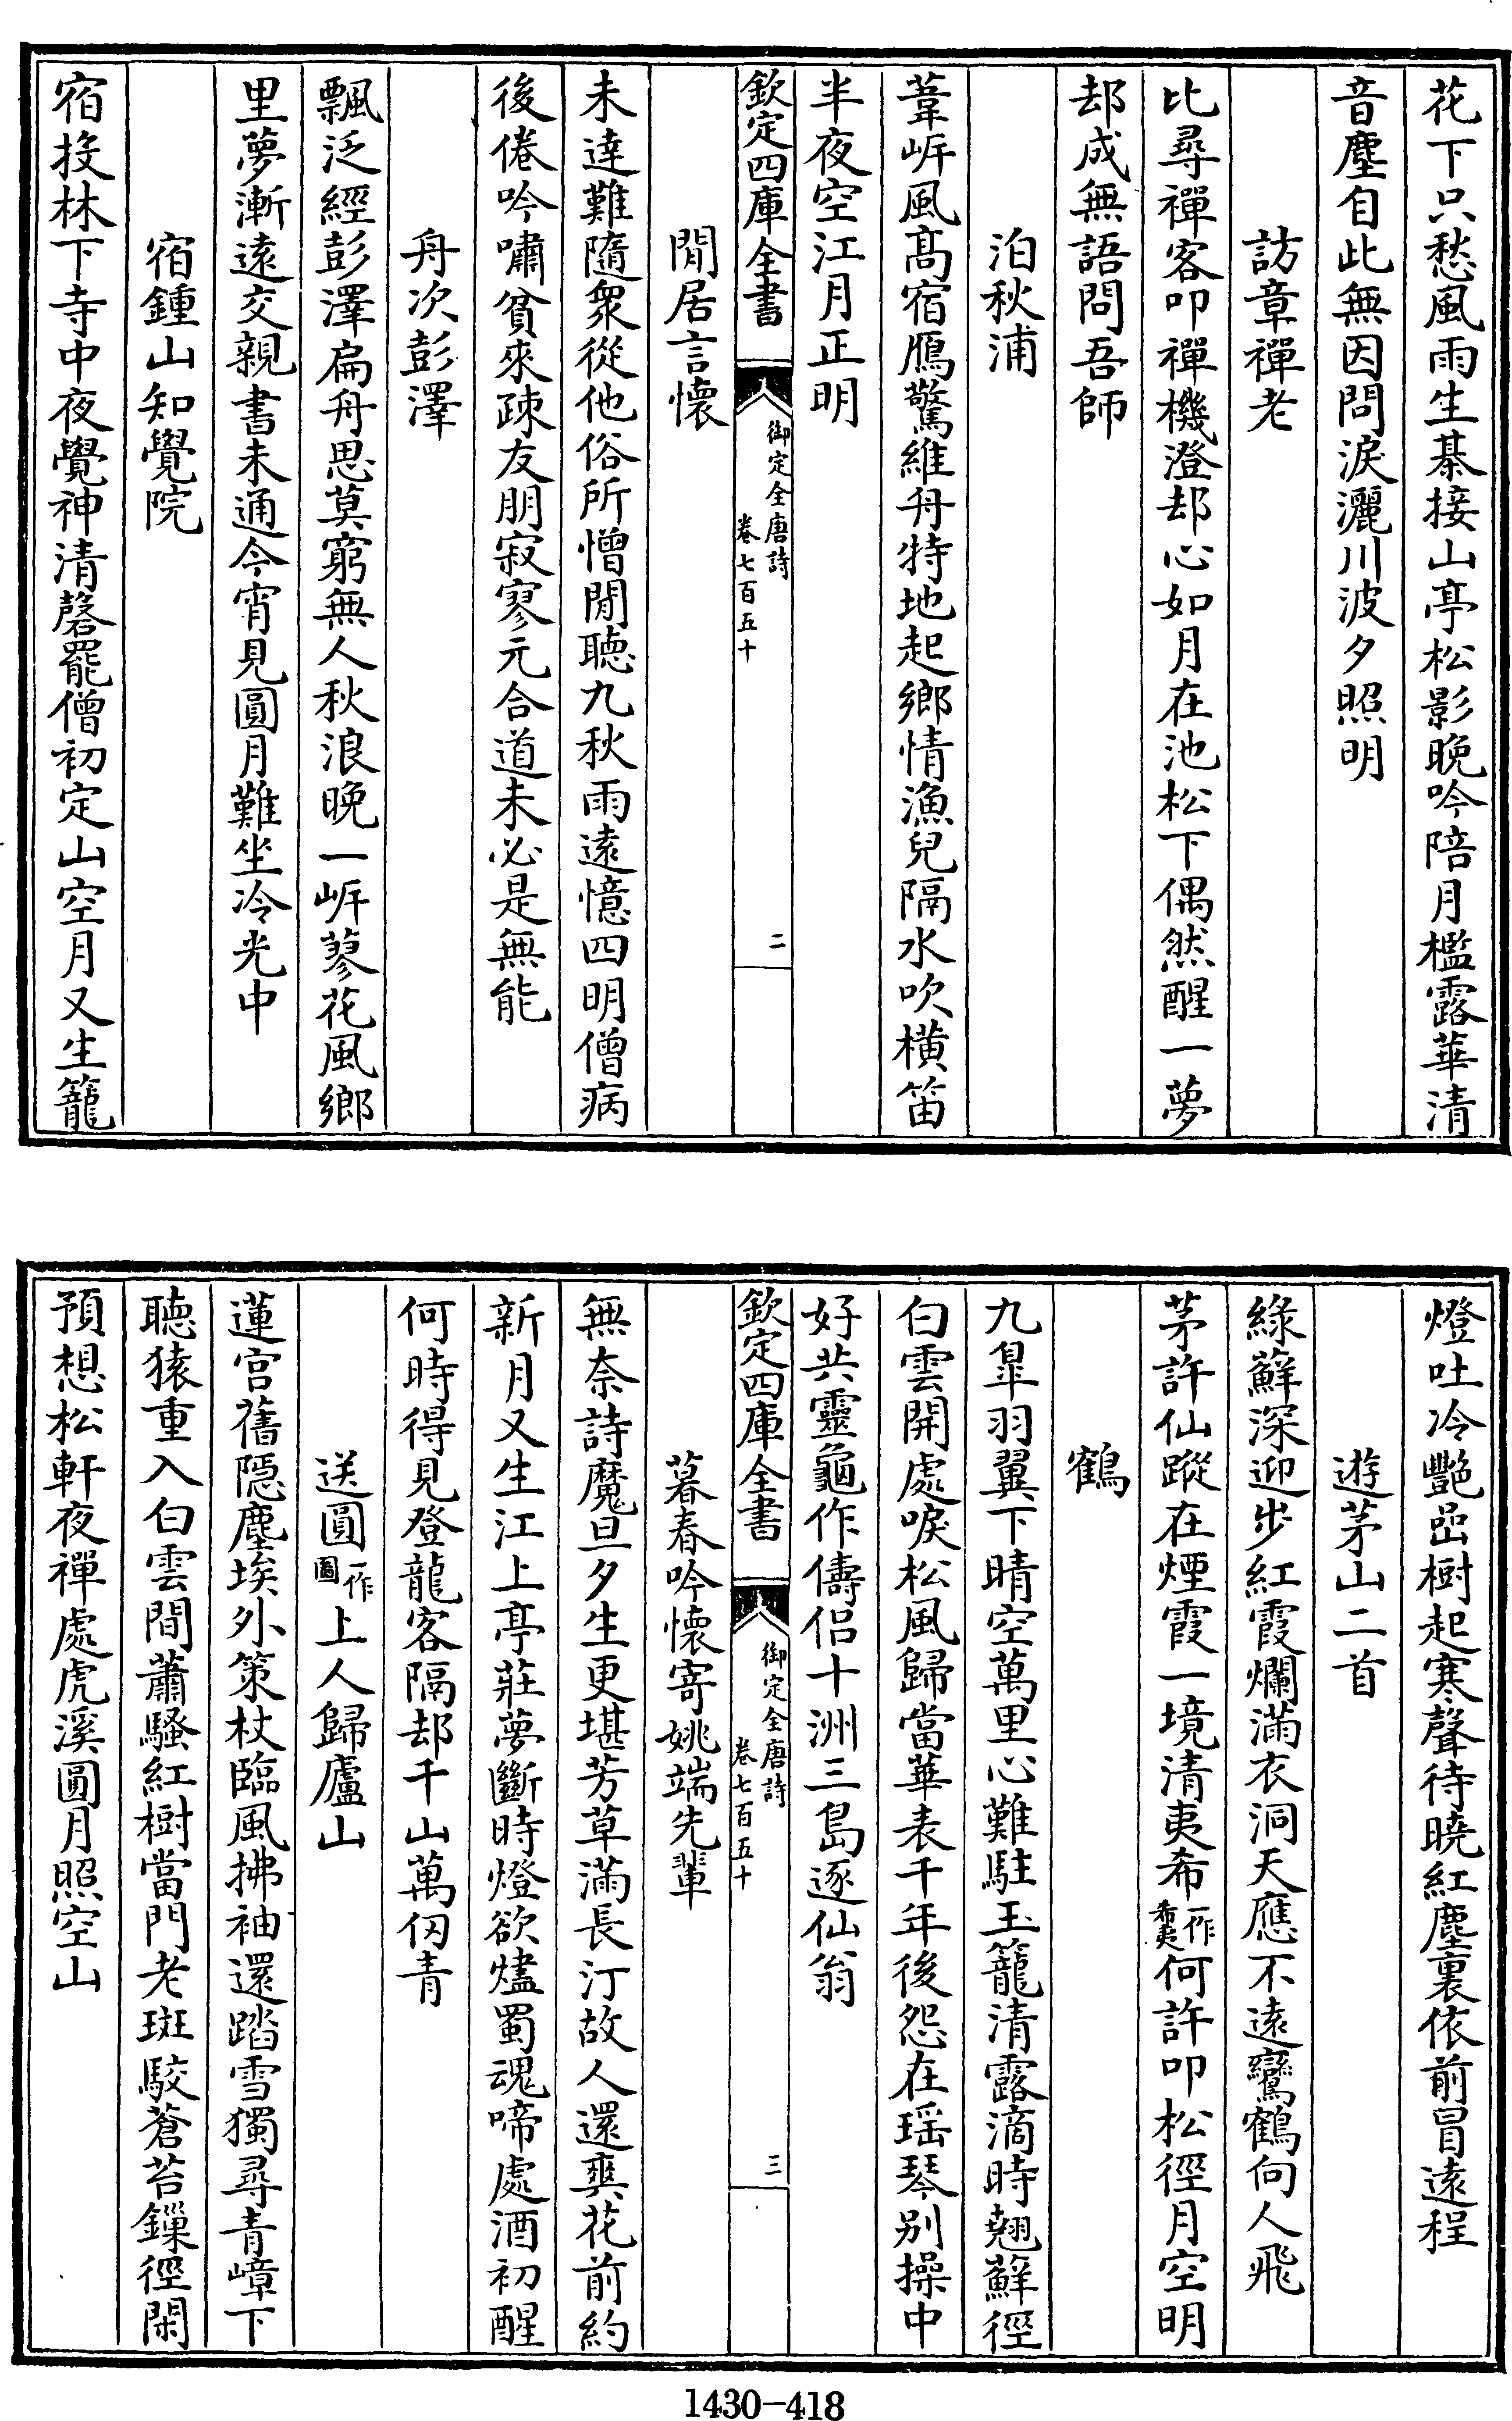 花下只愁風雨生棊接山亭松影晚吟陪月檻露華清
音塵自此無因問淚灑川波夕照明
訪章禪老
比尋禪客叩禪機澄却心如月在池松下偶然醒一夢
却成無語問吾師
泊秋浦
葦岸風高宿鴈驚維舟特地起鄉情漁兒隔水吹橫笛
半夜空江月正明
欽定四庫全書
御定全唐詩
卷七百五十
二
閒居言懷
未達難隨衆從他俗所憎閒聽九秋雨遠憶四明僧病
後倦吟嘯貧來疎友朋寂寥元合道未必是無能
舟次彭澤
飄泛經彭澤扁舟思莫窮無人秋浪晚一岸蓼花風鄉
里夢漸遠交親書未通今宵見圓月難坐冷光中
宿鍾山知覺院
宿投林下寺中夜覺神清磬罷僧初定山空月又生籠
燈吐冷艷嵒樹起寒聲待曉紅塵裏依前冒遠程
遊茅山二首
綠蘚深迎步紅霞爛滿衣洞天應不遠鸞鶴向人飛
茅許仙蹤在煙霞一境清夷希一作希夷何許叩松徑月空明
鶴
九臯羽翼下晴空萬里心難駐玉籠清露滴時翹蘚徑
白雲開處唳松風歸當華表千年後怨在瑶琴別操中
好共靈龜作儔侣十洲三島逐仙翁
欽定四庫全書
御定全唐詩
卷七百五十
三
暮春吟懷寄姚端先輩
無奈詩魔旦夕生更堪芳草滿長汀故人還爽花前約
新月又生江上亭莊夢斷時燈欲燼蜀魂啼處酒初醒
何時得見登龍客隔却千山萬仭青
送圓一作圖上人歸廬山
蓮宮舊隠塵埃外策杖臨風拂袖還踏雪獨尋青嶂下
聽猿重入白雲間蕭騷紅樹當門老斑駮蒼苔鏁徑閑
預想松軒夜禪處虎溪圓月照空山
1430-418